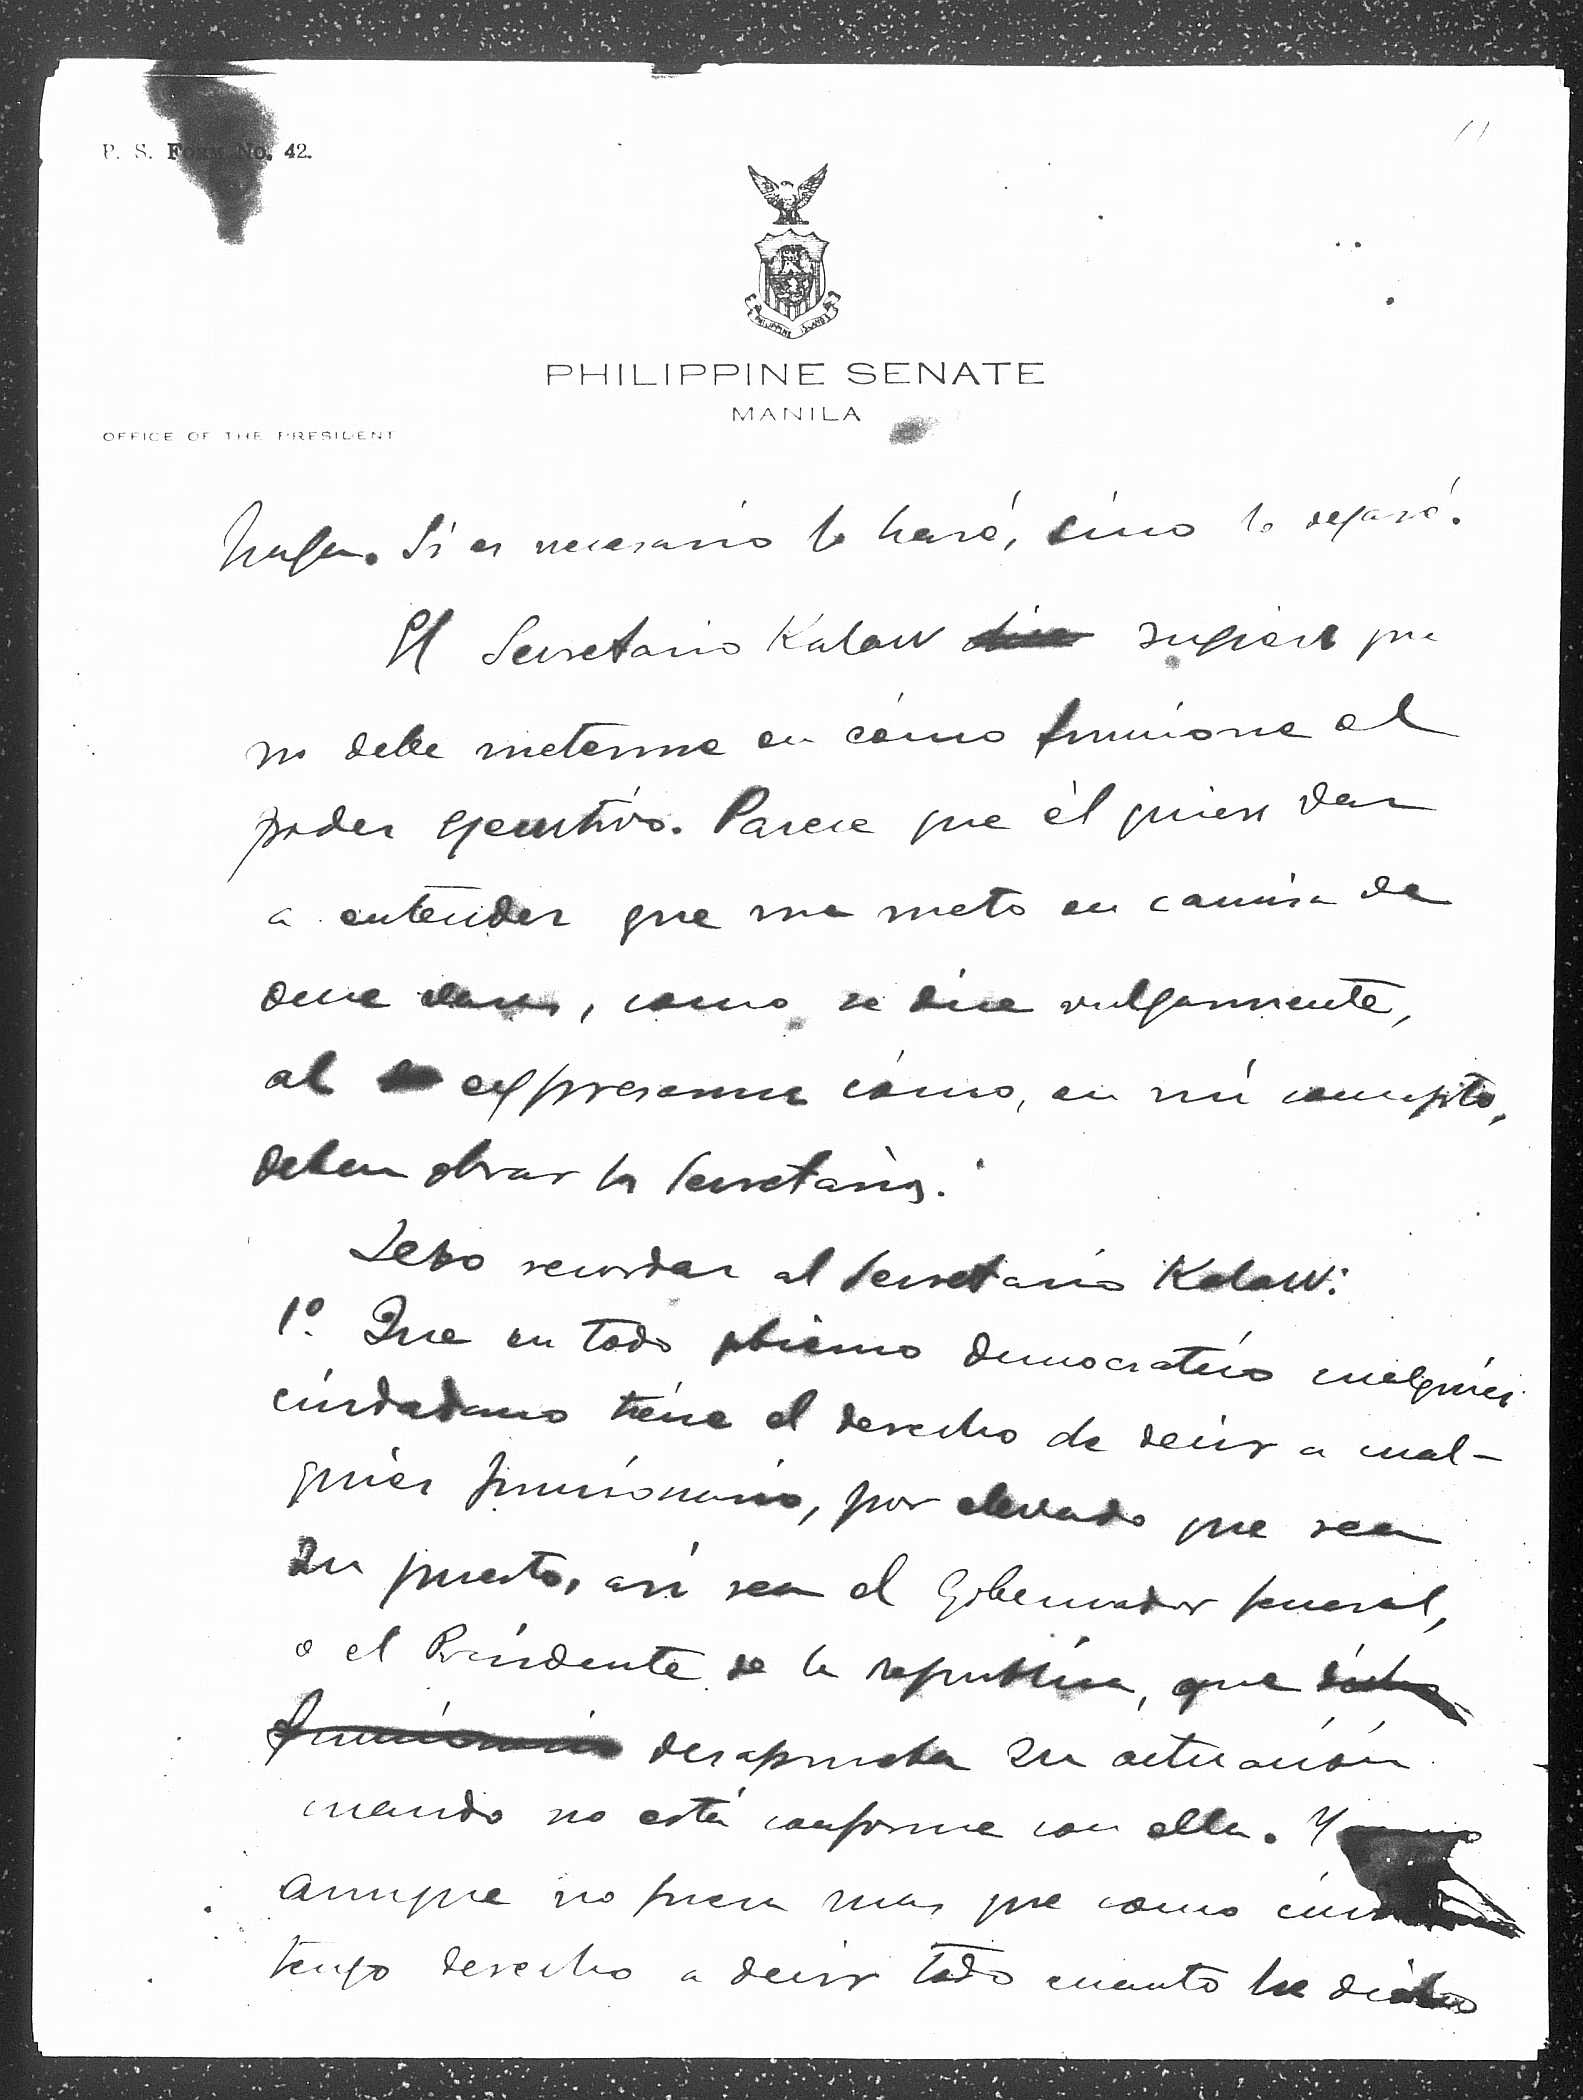 P. S. FORM NO. 42.
11
PHILIPPINE ISLANDS
PHILIPPINE SENATE
MANILA
OFFICE OF THE PRESIDENT
haga. Si es necesario lo haré, sino lo dejaré.
El Secretario Kalaw dice sugiere que
no debe meterme en cómo funciona el
poder ejecutivo. Parece que él quiere dar
a entender que me meto en camisa de
once varas, como se dice vulgarmente,
al expresarme cómo, en mi concepto,
deben obrar los Secretarios.
Debo recordar al Secretario Kalaw:
1º. Que en todo gobierno democratico cualquier
ciudadano tiene el derecho de decir a cual-
quier funcionario, por elevado que sea
su puesto, asi sea el Gobernador General,
o el Presidente de la republica, que dicho
funcionario desaprueba su actuación
cuando no está conforme con ella. Y
aunque no fuera mas que como
tengo derecho a decir todo cuanto he dicho